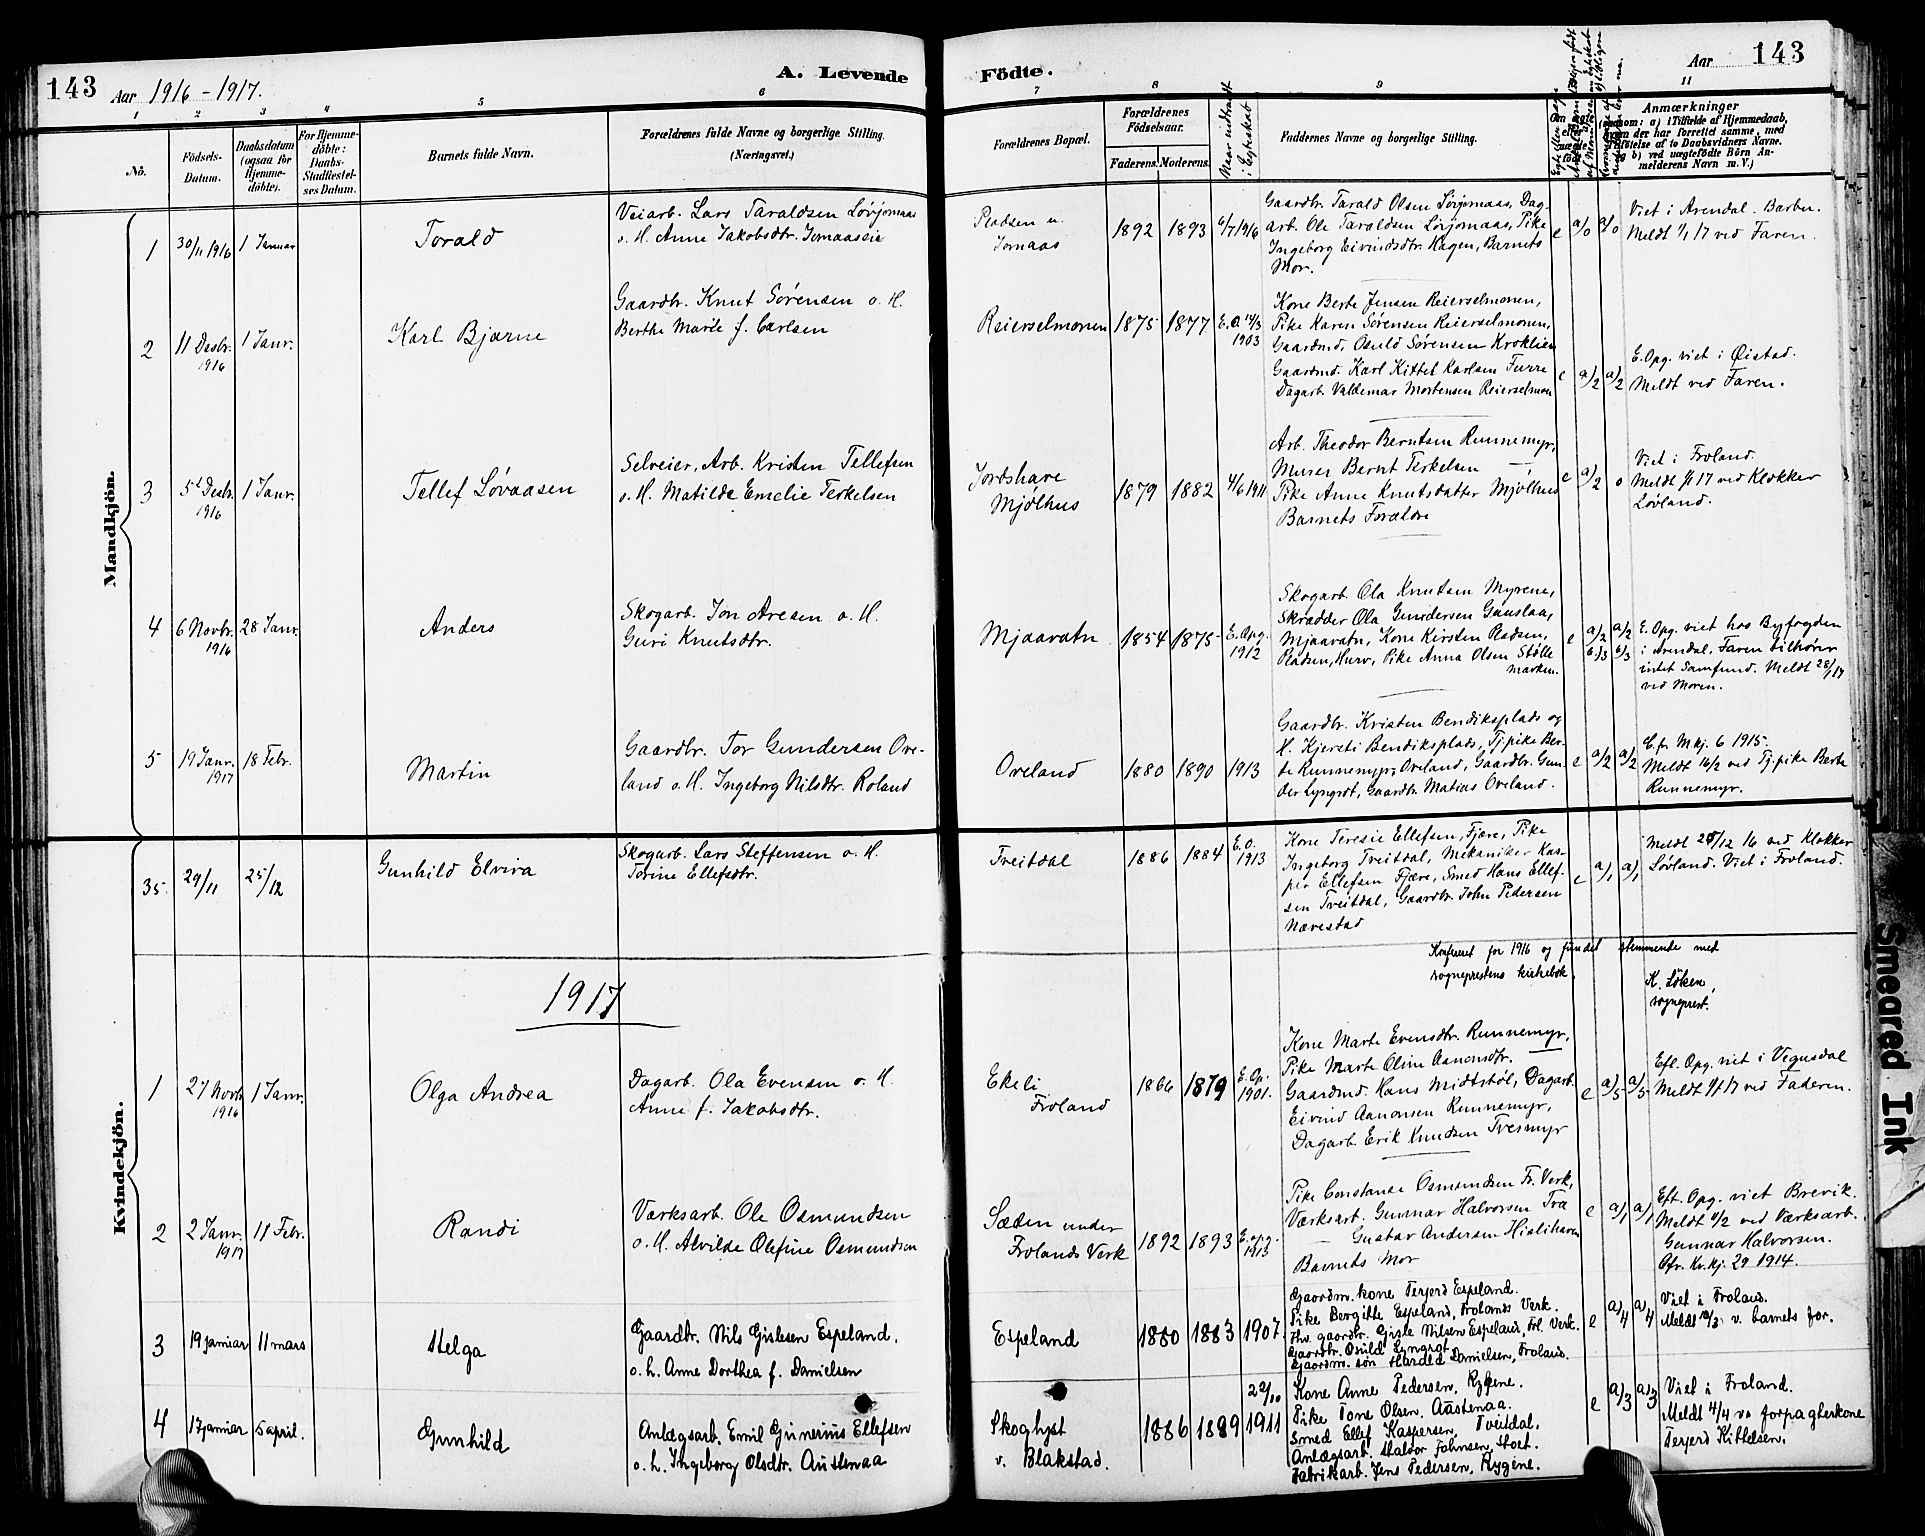 143 Aar 1916 - 1917.
A. Levende
Födte.
Aar 143
1 2 3 4 5 6
7 8 9 11
No.
Födsels-
Datum.
Daabsdatum
(ogsaa for
Hjemme-
döbte).
For Hjemme-
döbte:
Daabs-
Stadfæstel-
ses Datum.
Barnets fulde Navn.
Forældrenes fulde Navne og borgerlige Stilling.
(Næringsvei.)
Forældrenes Bopæl.
Forældrenes
Födselsaar.
Faderens. Moderens.
Naar indtraadt
i Egteskab
Faddernes Navne og borgerlige Stilling.
Anmærkninger
Mandkjön.
1
30/11 1916
1 Januar
Torald
Veiarb. Lars Taraldsen Lövjomaas
o. H. Anne Jakobsdtr. Jomaaseie
Pladsen u.
Jomaas
1892
1893
6/7 1916
Gaardbr. Tarald Olsen Lövjomaas, Dag-
arb. Ole Taraldsen Lövjomaas, Pike
Ingeborg Eivindsdtr. Hagen, Barnets
Mor.
e
a/0
a/0
Viet i Arendal. Barbu.
Meldt 1/1 17 ved Faren.
2
11 Desbr.
1916
1 Janr.
Karl Bjarne
Gaardbr. Knut Sörensen o. H.
Berthe Marie f. Carlsen
Reierselmonen
1875
1877
E. O. 14/3
1903
Kone Berte Jensen Reierselmonen,
Pike Karen Sørensen Reierselmonen,
Gaardmd. Osuld Sørensen Kroklien
Gaardmd. Karl Kittel Karlsen Furre
Dagarb. Valdemar Mortensen Reierselmon
e
a/2
a/2
E. Opg. viet i Øistad.
Meldt ved Faren.
3
5t Desbr.
1916
1 Janr.
Tellef Lövaasen
Selveier, Arb. Kristen Tellefsen
o. H. Matilde Emelie Terkelsen
Jordshave
Mjölhus
1879
1882
4/6 1911
Arb. Theodor Berntsen Runnemyr,
Murer Bernt Terkelsen —
Pike Anne Knutsdatter Mjölhus
Barnets Forældre
e
a/2
0
Viet i Froland.
Meldt 1/1 17 ved Klokker
Lövland.
4
6 Novbr.
1916
28 Janr.
Anders
Skogarb. Jon Aresen o. H.
Guri Knutsdtr.
Mjaavatn
1854
1875
E. Opg.
1912
Skogarb. Ola Knutsen Myrene,
Skrædder Ola Gundersen Gauslaa,
Mjaavatn, Kone Kirsten Pladsen,
Pladsen, Hurv, Pike Anna Olsen Stölle
marken.
e
a/2
6/3
a/2
6/3
E. Opg. viet hos Byfogden
i Arendal, Faren tilhörer
intet Samfund. Meldt 28/1 17
ved Moren.
5
19 Janr.
1917
18 Febr.
Martin
Gaardbr. Tor Gundersen Ove-
land o. H. Ingeborg Nilsdtr. Roland
Oveland
1880
1890
1913
Gaardbr. Kristen Bendiksplads og
H. Kjersti Bendiksplads, Tj.pike Ber-
te Runnemyr, Oveland, Gaardbr. Gun-
der Lyngrot, Gaardbr. Matias Oveland.
e
a/2
a/2
Cfr. Mkj. 6 1915.
Meldt 16/2 ved Tj.pike Berte
Runnemyr.
Kvindekjön.
35.
29/11
25/12
Gunhild Elvira
Skogarb. Lars Steffensen o. H.
Torine Ellefsdtr.
Treitdal
1886
1884
E. O.
1913
Kone Teresie Ellefsen, Fjære, Pike
Ingeborg Treitdal, Mekaniker Kas-
per Ellefsen Fjære, Smed Hans Ellef-
sen Treitdal, Gaardbr. John Pedersen
Nævestad
e
a/1
a/1
Meldt 25/12 16 ved Klokker
Lövland. Viet i Froland.
Konfereret for 1916 og fundet stemmende med
sogneprestens kirkebok.
K. Löken,
sogneprest.
1917
1
27 Novb.
1916
1 Janr.
Olga Andrea
Dagarb. Ola Evensen o. H.
Anne f. Jakobsdtr.
Ekeli
Froland
1866
1879
E. Op.
1901.
Kone Marte Evensdtr. Runnemyr,
Pike Marte Oline Aanonsdtr. —
Gaardmd. Hans Midtstöl, Dagarb.
Eivind Aanonsen Runnemyr,
Dagarb. Erik Knudsen Tvesmyr
e
a/5
a/5
Eft. Opg. viet i Vegusdal
Meldt 1/1 17 ved Faderen.
2
2 Janr.
1917
11 Febr.
Randi
Værksarb. Ole Osmundsen
o. H. Alvilde Olefine Osmundsen
Sæden under
Frolands Verk
1892
1893
E. opg.
1913
Pike Constanse Osmundsen Fr. Verk,
Værksarb. Gunnar Halvorsen Træ
— Gustav Andersen Hislihaven
Barnets Mor
e
a/1
a/1
Eft. Opg. viet Brevik.
Meldt 11/2 ved Værksarb.
Gunnar Halvorsen.
Cfr. Kv.kj. 29 1914.
3
19 januar
11 mars
Helga
Gaardbr. Nils Gislesen Espeland.
o. h. Anne Dorthea f. Danielsen
Espeland
1880
1883
1907.
Gaardm. kone Terjerd Espeland.
Pike Bergitte Espeland, Frolands Verk.
Fhv. gaardbr. Gisle Nilsen Espeland, Frl. Verk.
Gaardbr. Osuld Lyngrot
Gaardm. søn Harald Danielsen, Froland.
e
a/4
a/4
Viet i Froland.
Meldt 10/3 v. barnets far.
4
17 januar
5 april.
Gunhild
Anlægsarb. Emil Gunerius Ellefsen
o. h. Ingeborg Olsdtr. Austenaa
Skoglyst
v. Blakstad.
1886
1889
22/10
1911
Kone Anne Pedersen, Rygene.
Pike Tone Olsen. Austenaa.
Smed Ellef Kaspersen, Tveitdal,
Anlægsarb. Halvor Johnsen, Stoet.
Fabrikarb. Jens Pedersen, Rygene.
e
a/3
a/3
Viet i Froland.
Meldt 4/4 ve forpagterkone
Terjerd Kittelsen.
Smeared Ink